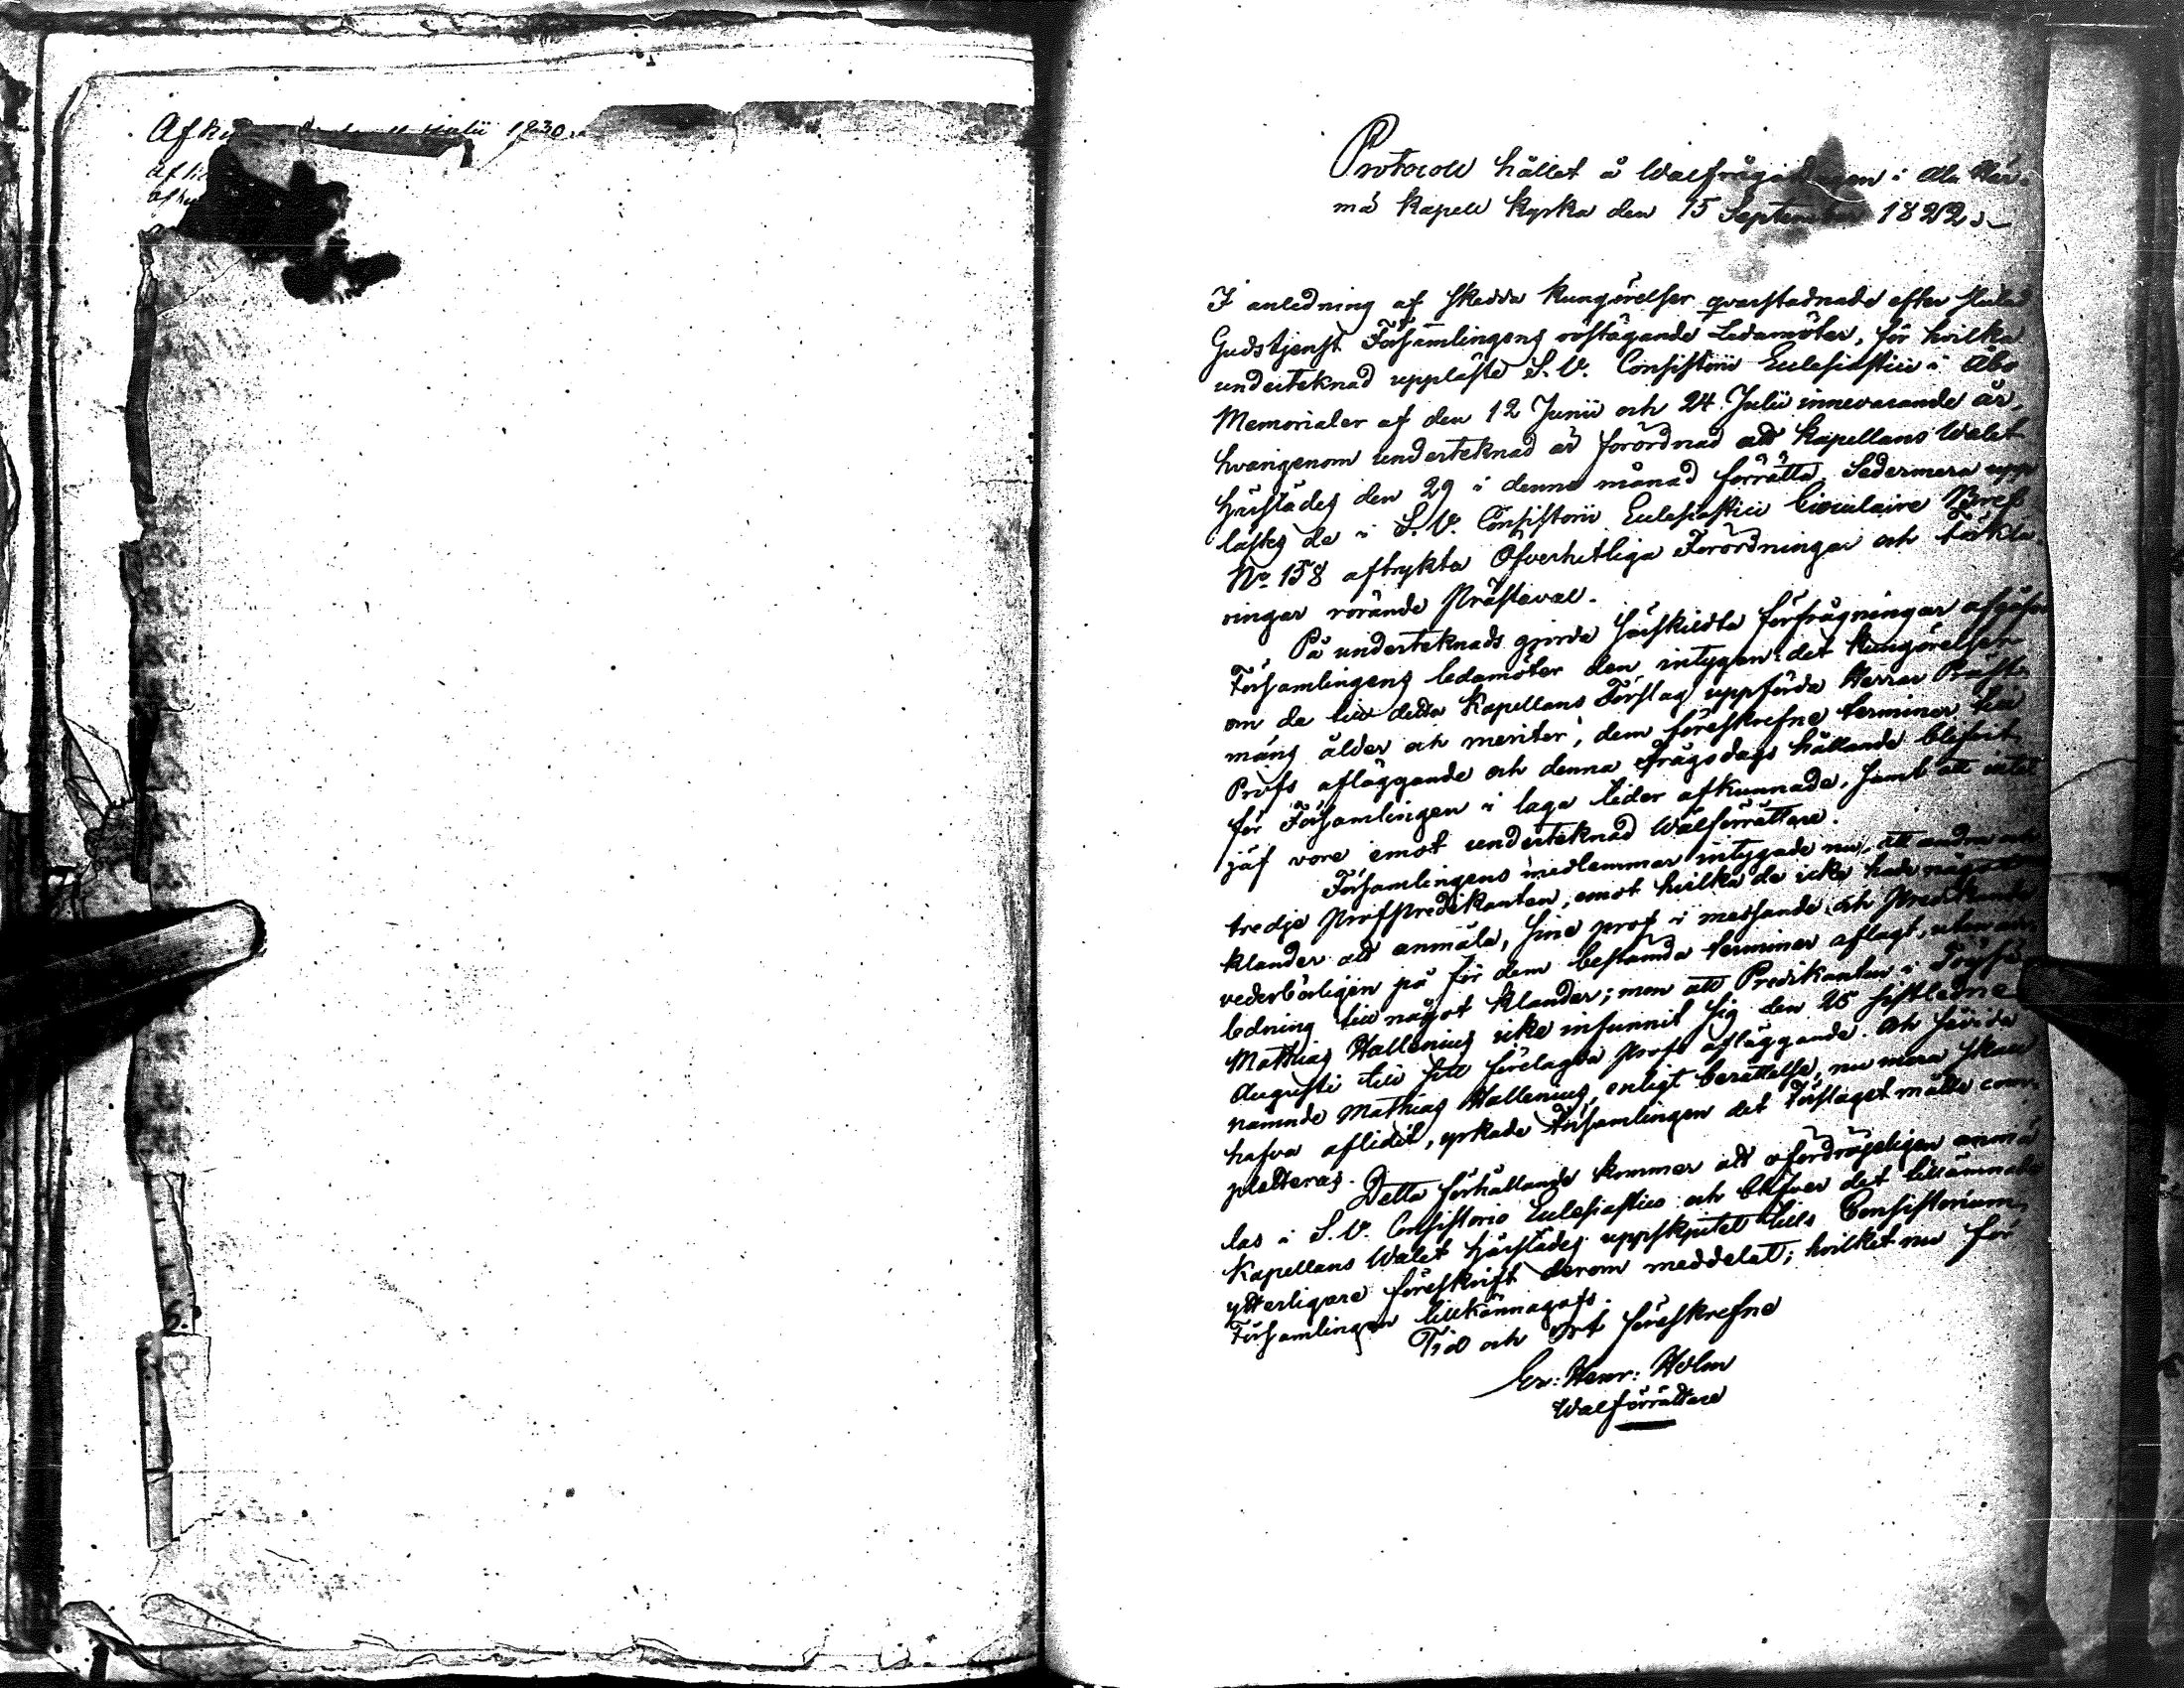 Julii 1830
Protocoll hållet å Walfrågodagen i Ala Här-
mä Kapell Kyrka den 15 September 1822.
I anledning af skedda kungörelser qvarstadnade efter slutad
Gudstjenst Församlingens röstägande Ledamöter, för hvilka
underteknad uppläste S. V. Consistorii Eclesiastici i Åbo
Memorialer af den 12 Junii och 24 Julii innevarande år,
hvarigenom underteknad är förordnad att Kapellans Walet
härstädes den 29 i denne månad förrätta. Sedermera upp
lästes de i S. V. Consistorii Eclesiastici Circulaire Bref
No 158 aftrykta Öfverhetliga Förordningar och Förkla
ringar rörande Prästeval.
På underteknads gjorda särskildta förfrågningar afgåfvo
Församlingens ledamöter den intygan: det kungörelsen
om de till detta Kapellans Förslag uppförda Herrar Präste
mäns ålder och meriter, dem föreskrefne terminer till
Profs afläggande och denna frågodags hållande blifvit
för Församlingen i laga tider afkunnade, samt att intet
jäf vore emot underteknad Walförrättare.
Församlingens medlemmar intygade nu, att andra och
tredje Profpredikanten, emot hvilka de icke hade något
klander att anmäla, sine prof i messande och Predikande
vederbörligen på för dem bestämda terminer aflagt, utan an-
ledning till något klander; men att Predikanten i
Mathias Hallenius icke infunnit sig den 25 sistledne
Augusti till sitt förelagda Profs afläggande. Och som
nämnde Mathias Hallenius, enligt berättelse, nu mera skall
hafva aflidit, yrkade Församlingen det Förslaget måtte com-
pletteras. Detta förhållande kommer att ofördröjeligen anmä
las i S. V. Consistorio Eclesiastico och blifver det tillämnade
Kapellans Walet härstädes uppskjutet tills Consistorium
ytterligare föreskrift derom meddelat; hvilket nu för
Församlingen tillkännagafs.
Tid och Ort föreskrefne
Er: Henr: Holm
Walförrättare